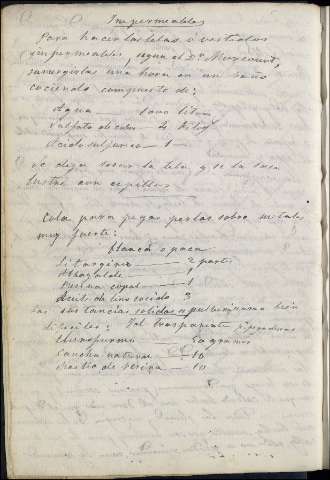 Impermeables
Para hacer las telas ó vestidos
impermeables, segun el Dr
sumergirlas una hora en un baño
cociendo compuesto de:
Agua litros
Sulfato de 4 Kilog
Acido sulfurico — 1 —
se deja secar la tela y se la saca
lustre con cepillos
Cola para pegar perlas sobre metales
muy fuerte:
Blanca opaca
Litargirio — 2 partes
Albayalde — 1
Resina copal — 1
Aceite de lino cocido 3
las sustancias solidas se pulverizaran bien
Id. trasparente
Cloroformo — 50 gramos
Caucho natural — 10
Mastic de resina — 10